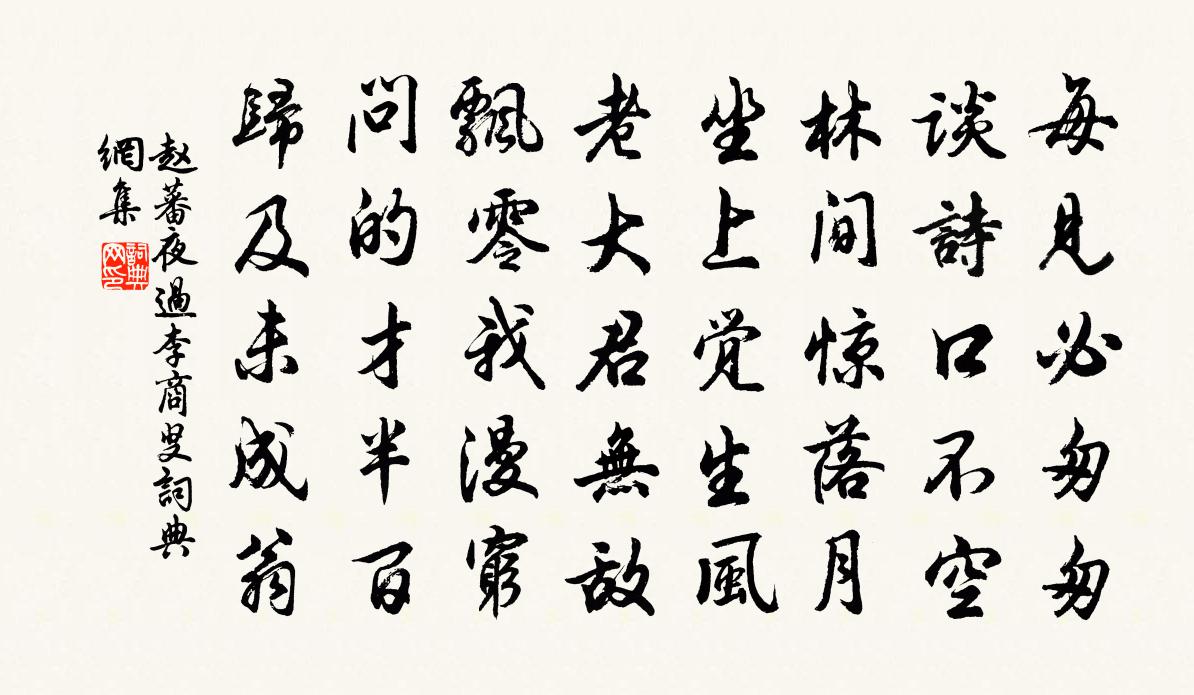 每見必匆匆
談詩口不空
林間惊落月
坐上覺生風
老大君無敵
飄零我漫窮
問的才半百
歸及未成翁
赵蕃夜過李商叟詞典
網集
詞典
网印